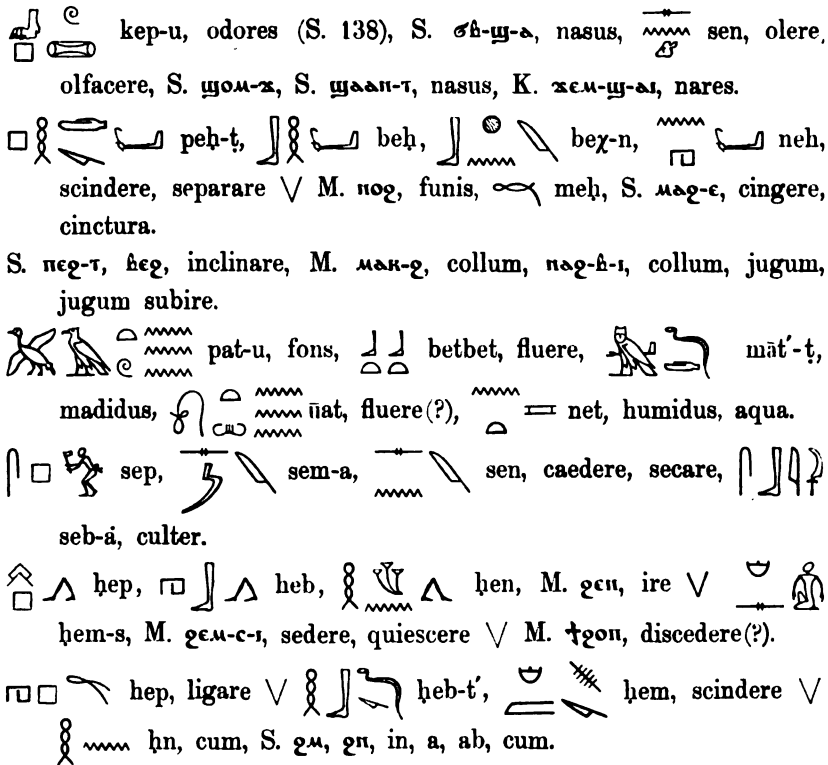 kep-u, odores (S. 138), S. ϭⲃ-ϣ-ⲁ, nasus, sen, olere,
olfacere, S. ϣⲟⲙ-ϫ, S. ϣⲁⲁⲛ-ⲧ, nasus, K. ϫⲉⲙ-ϣ-ⲁⲓ, nares.
peḥ-ṭ, beḥ, beχ-n, neh,
scindere, separare ∨ M. ⲛⲟϩ, funis, meḥ, S. ⲙⲁϩ-ⲉ, cingere,
cinctura.
S. ⲡⲉϩ-ⲧ, ⲃⲉϩ, inclinare, M. ⲙⲁⲕ-ϩ, collum, ⲛⲁϩ-ⲃ-ⲓ, collum, jugum,
jugum subire.
pat-u, fons, betbet, fluere, māt′-ṭ,
madidus, n̄at, fluere(?), net, humidus, aqua.
sep, sem-a, sen, caedere, secare,
seb-ȧ, culter.
ḥep, heb, ḥen, M. ϩⲉⲛ, ire ∨
ḥem-s, M. ϩⲉⲙ-ⲥ-ⲓ, sedere, quiescere ∨ M. ϯϩⲟⲛ, discedere(?).
hep, ligare ∨ ḥeb-t′, ḥem, scindere ∨
ḥn, cum, S. ϩⲙ, ϩⲛ, in, a, ab, cum.